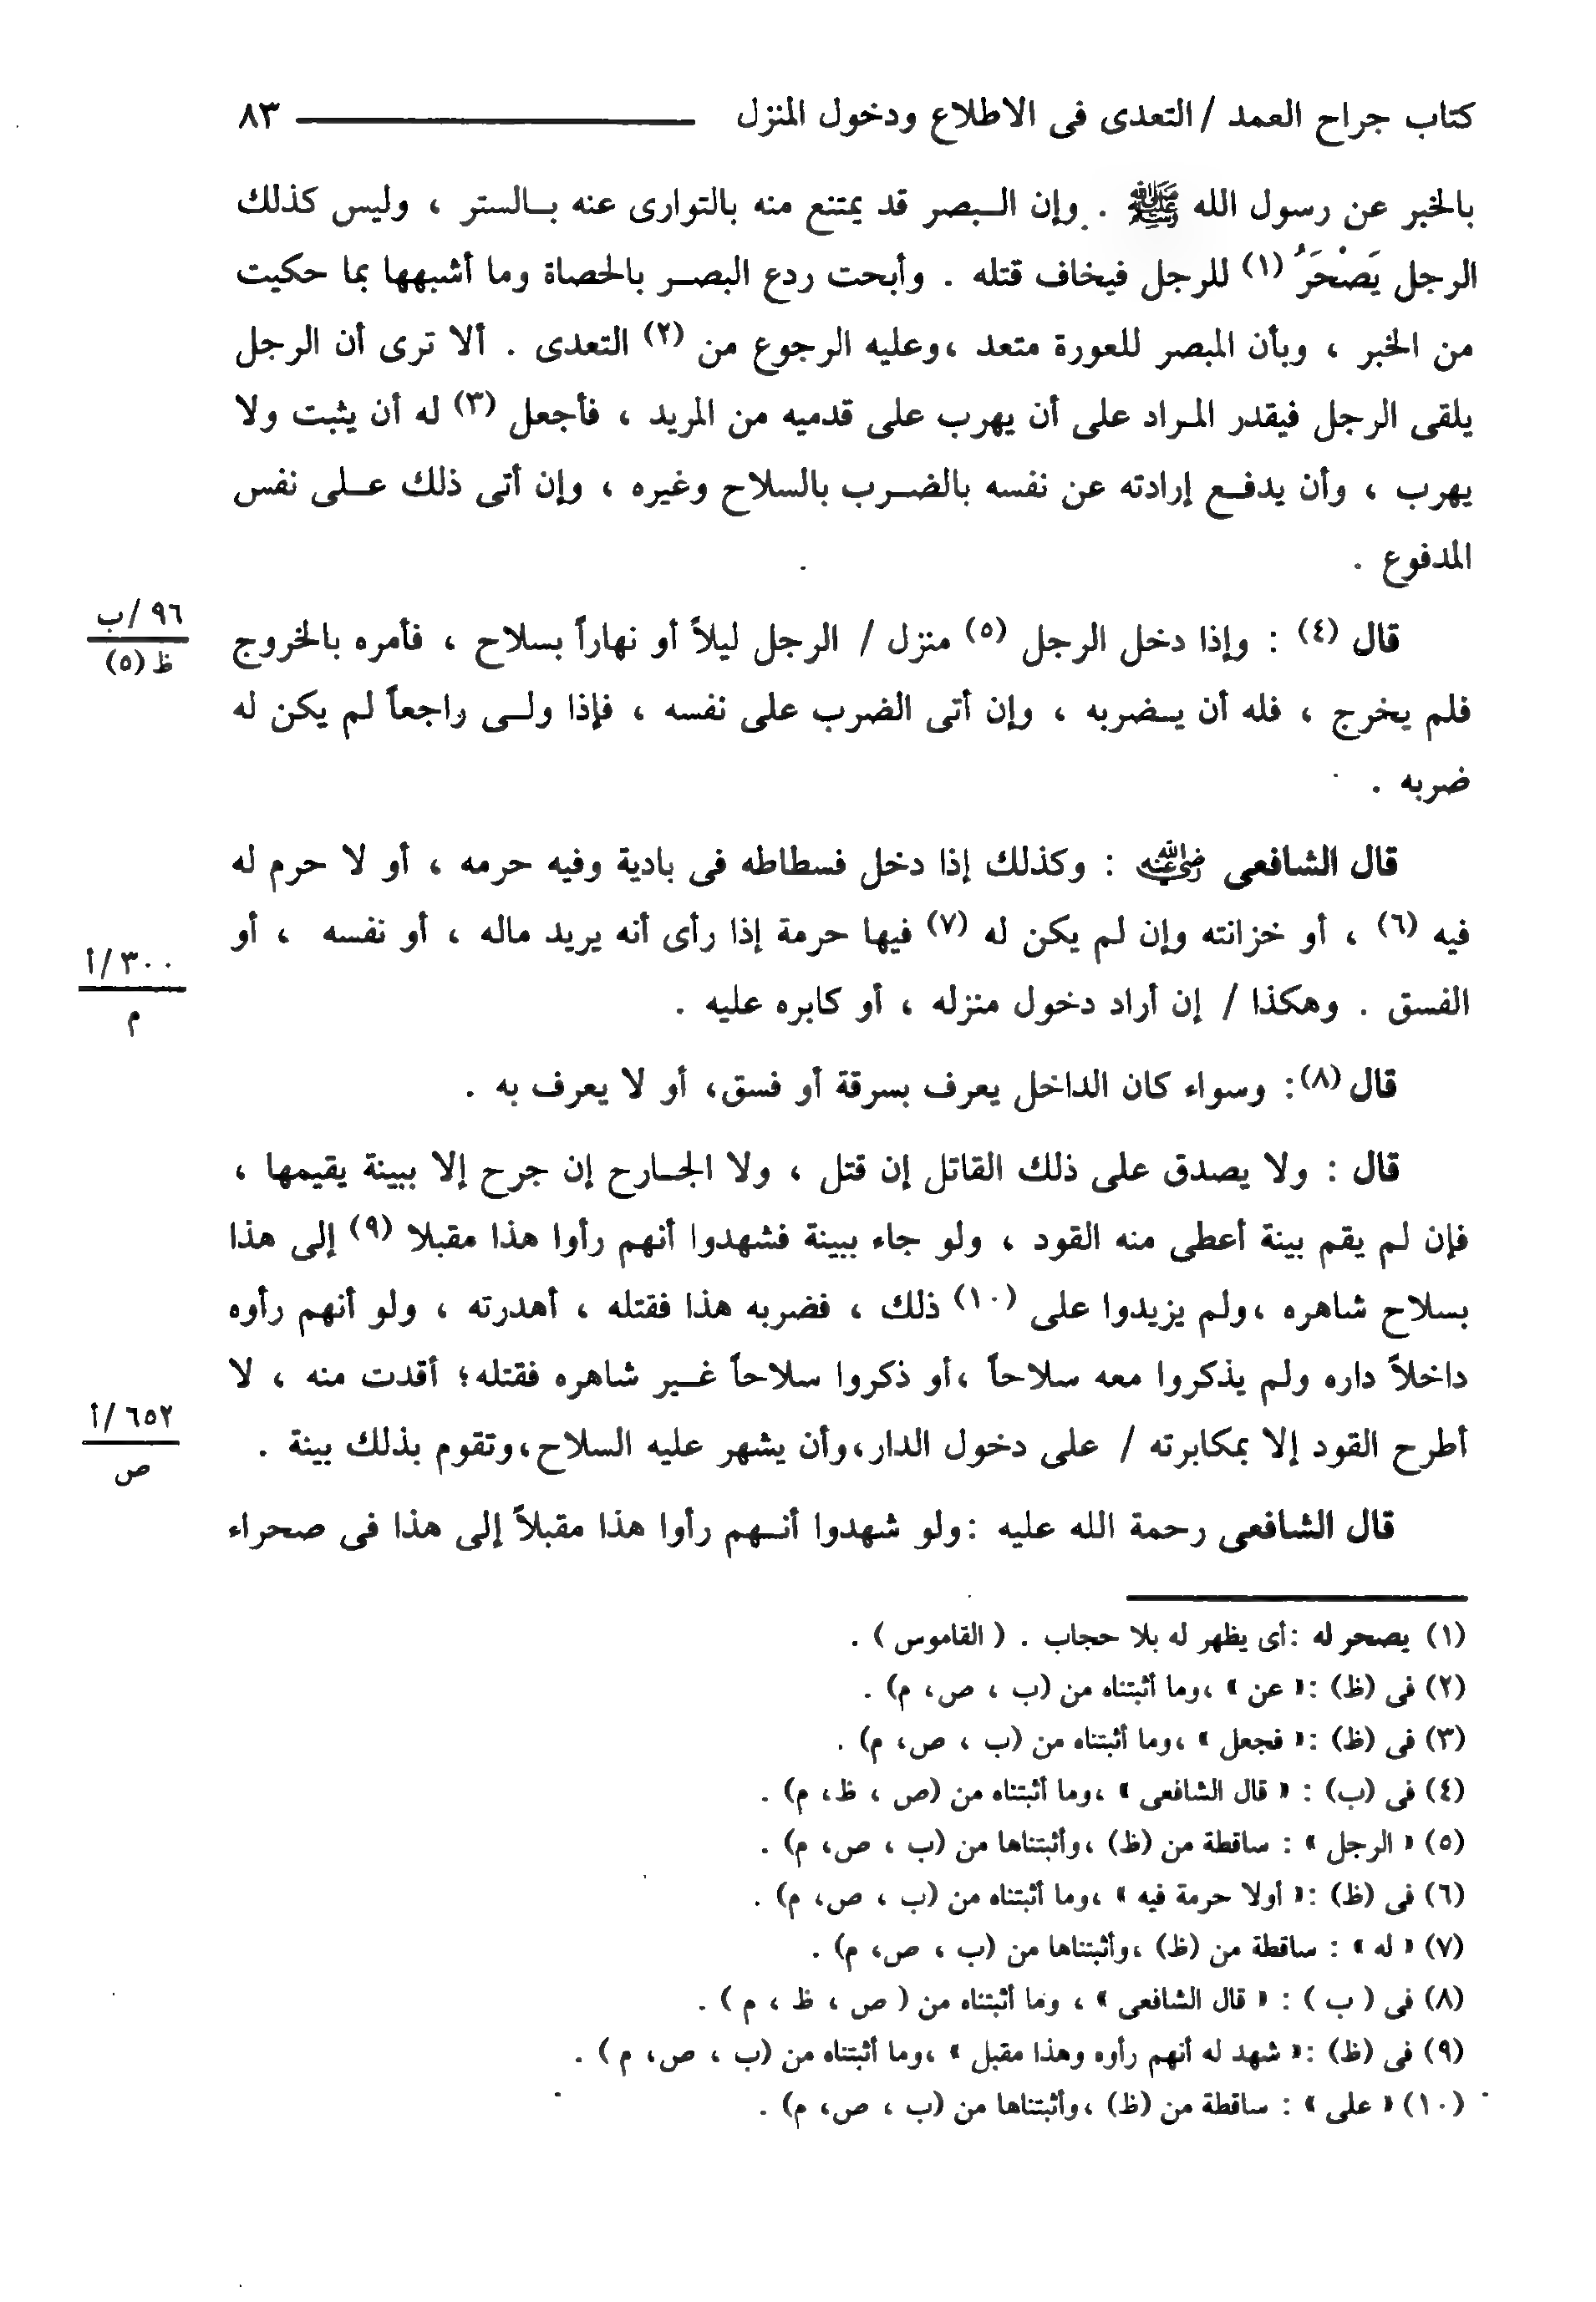 كتاب جراح العمد / التعدى فى الاطلاع ودخول المنزل ــــــــــ ٨٣
بالخبر عن رسول الله ﷺ . وإن البصر قد يمتنع منه بالتوارى عنه بالستر ، وليس كذلك
الرجل يَصْحَرُ (١) للرجل فيخاف قتله . وأبحت ردع البصر بالحصاة وما أشبهها بما حكيت
من الخبر ، وبأن المبصر للعورة متعد ،وعليه الرجوع من (٢) التعدى . ألا ترى أن الرجل
يلقى الرجل فيقدر المراد على أن يهرب على قدميه من المريد ، فأجعل (٣) له أن يثبت ولا
يهرب ، وأن يدفع إرادته عن نفسه بالضرب بالسلاح وغيره ، وإن أتى ذلك على نفس
المدفوع .
قال (٤) : وإذا دخل الرجل (٥) منزل / الرجل ليلاً أو نهاراً بسلاح ، فأمره بالخروج
٩٦/ب
ظ (٥)
فلم يخرج ، فله أن يضربه ، وإن أتى الضرب على نفسه ، فإذا ولى راجعاً لم يكن له
ضربه .
قال الشافعى رضي الله عنه : وكذلك إذا دخل فسطاطه فى بادية وفيه حرمه ، أو لا حرم له
فيه (٦) ، أو خزانته وإن لم يكن له (٧) فيها حرمة إذا رأى أنه يريد ماله ، أو نفسه ، أو
٣٠٠/أ
م
الفسق . وهكذا / إن أراد دخول منزله ، أو كابره عليه .
قال (٨): وسواء كان الداخل يعرف بسرقة أو فسق، أو لا يعرف به .
قال : ولا يصدق على ذلك القاتل إن قتل ، ولا الجارح إن جرح إلا ببينة يقيمها ،
فإن لم يقم بينة أعطى منه القود ، ولو جاء ببينة فشهدوا أنهم رأوا هذا مقبلا (٩) إلى هذا
بسلاح شاهره ،ولم يزيدوا على (١٠) ذلك ، فضربه هذا فقتله ، أهدرته ، ولو أنهم رأوه
داخلاً داره ولم يذكروا معه سلاحاً ،أو ذكروا سلاحاً غير شاهره فقتله؛ أقدت منه ، لا
٦٥٢/أ
ص
أطرح القود إلا بمكابرته / على دخول الدار،وأن يشهر عليه السلاح،وتقوم بذلك بينة .
قال الشافعى رحمة الله عليه :ولو شهدوا أنهم رأوا هذا مقبلاً إلى هذا فى صحراء
(١) يصحر له :أى يظهر له بلا حجاب . ( القاموس ) .
(٢) فى (ظ) :« عن » ،وما أثبتناه من (ب ، ص، م) .
(٣) فى (ظ) :« فجعل » ،وما أثبتناه من (ب ، ص، م) .
(٤) فى (ب) : « قال الشافعى » ،وما أثبتناه من (ص ، ظ، م) .
(٥) « الرجل » : ساقطة من (ظ) ،وأثبتناها من (ب ، ص، م) .
(٦) فى (ظ) :« أولا حرمة فيه » ،وما أثبتناه من (ب ، ص، م) .
(٧) « له » : ساقطة من (ظ) ،وأثبتناها من (ب ، ص، م) .
(٨) فى ( ب ) : « قال الشافعى » ، وما أثبتناه من ( ص ، ظ ، م ) .
(٩) فى (ظ) :« شهد له أنهم رأوه وهذا مقبل » ،وما أثبتناه من (ب ، ص، م ) .
(١٠) « على » : ساقطة من (ظ) ،وأثبتناها من (ب ، ص، م) .